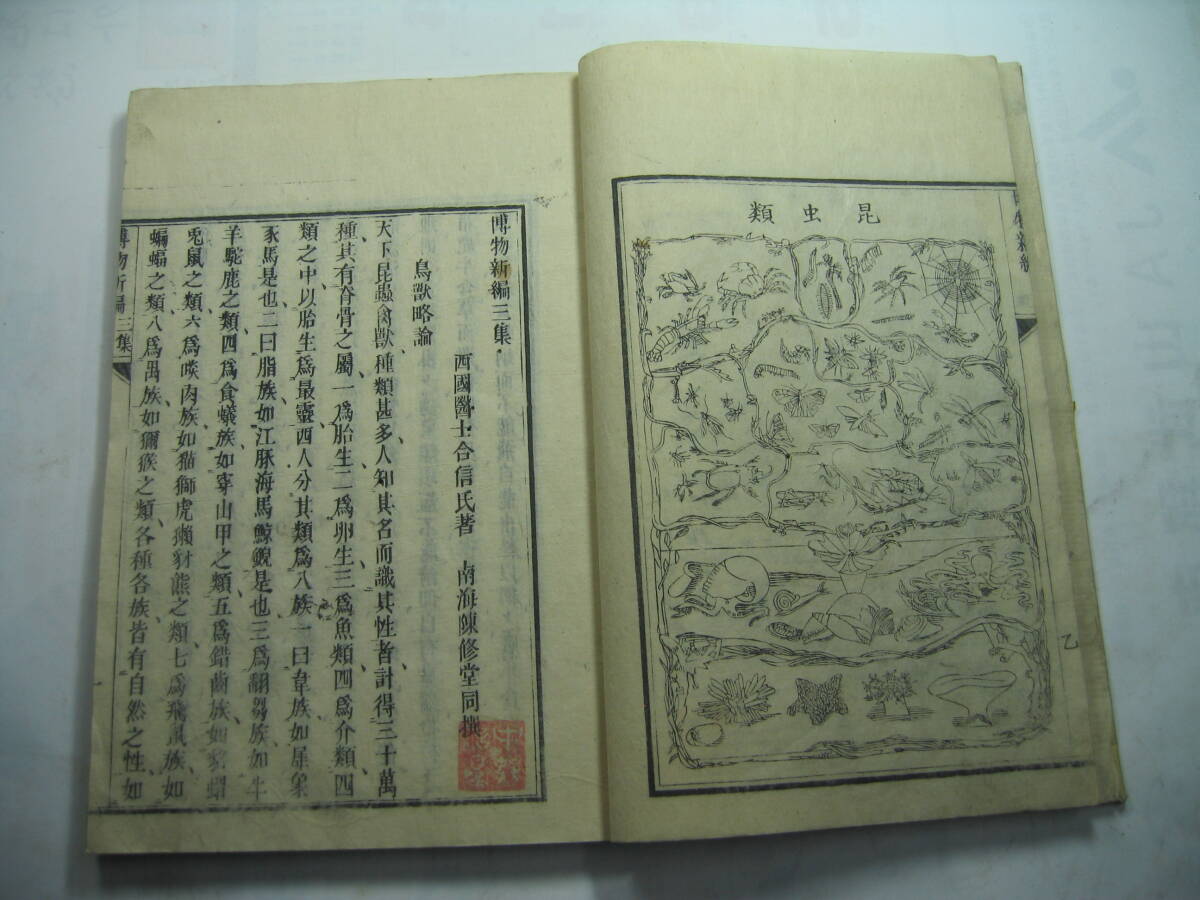 昆虫類
乙
博物新編三集
西國醫士合信氏著 南海陳修堂同撰
鳥獸略論
天下昆蟲禽獸種類甚多人知其名而識其性者計得三十萬
種其有脊骨之屬一爲胎生二爲卵生三爲魚類四爲介類四
類之中以胎生爲最靈西人分其類爲八族一曰韋族如犀象
豕馬是也二曰脂族如江豚海馬鯨鯢是也三爲翻芻族如牛
羊駝鹿之類四爲食蟻族如穿山甲之類五爲錯齒族如豪蝟
兎鼠之類六爲啖肉族如猫獅虎獺豺熊之類七爲飛鼠族如
蝙蝠之類八爲禺族如獼猴之類各種各族皆有自然之性如
博物新編三集